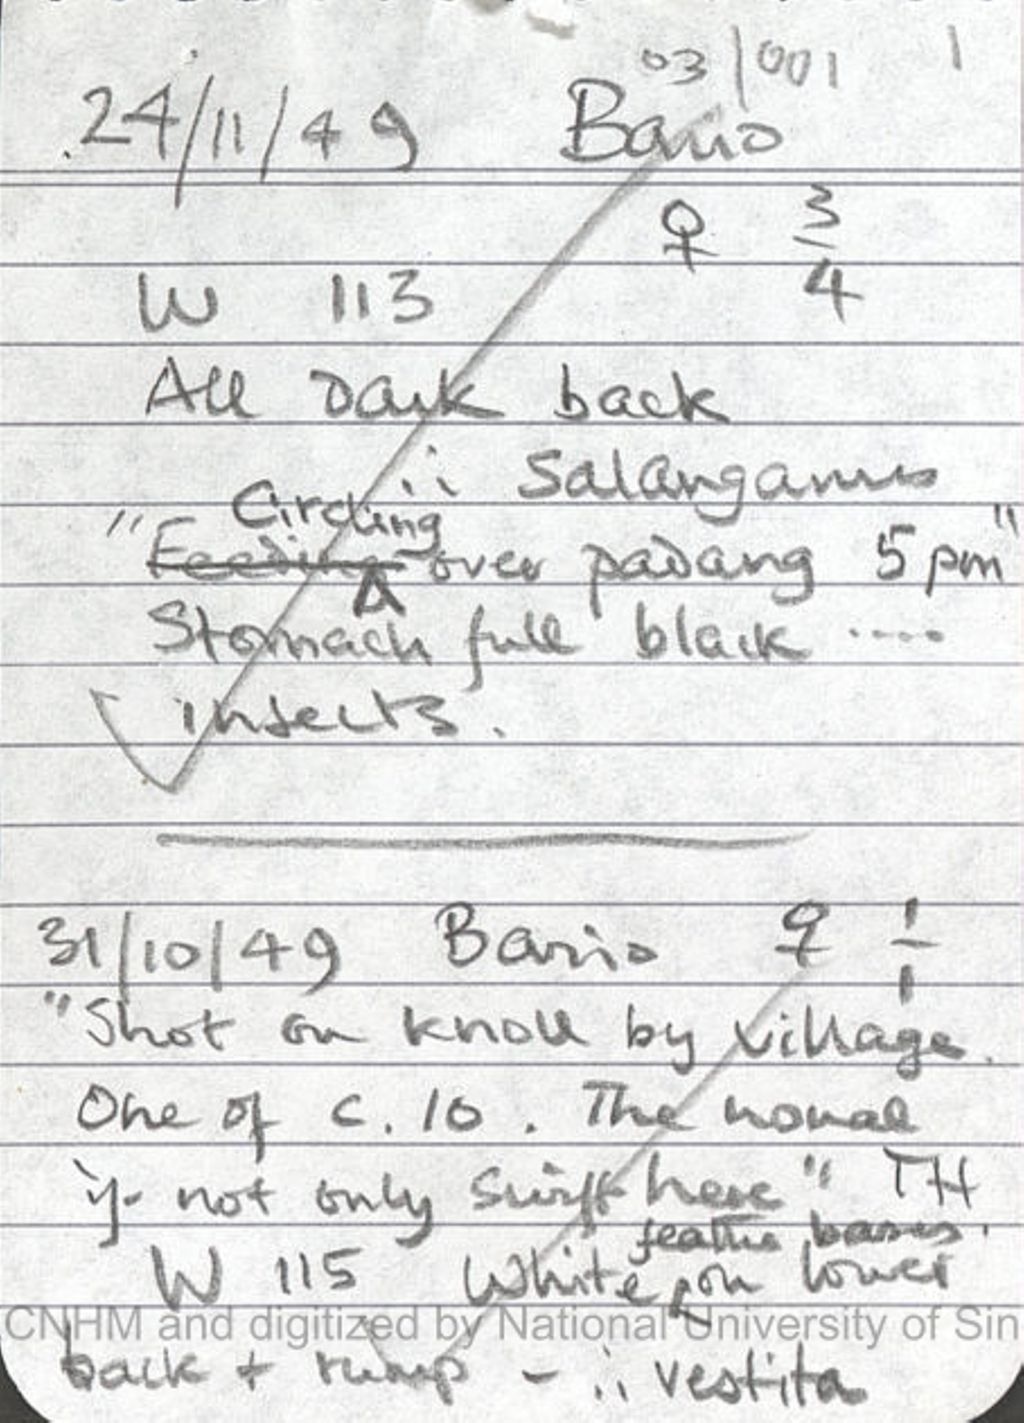 03/001 1
24/11/49 Bario
♀ 3/4
W 113
All Dark back
∴ Salanganus
Circling
" Feeding over padang 5 pm"
Stomach full black ....
insects.
31/10/49 Bario ♀ 1/1
"Shot on knoll by village.
One of c. 10. The normal
if not only swift here" TH
feather bases.
W 115 White on lower
CNHM and digitized by National University of Sin
back + rump - ∴ vestita